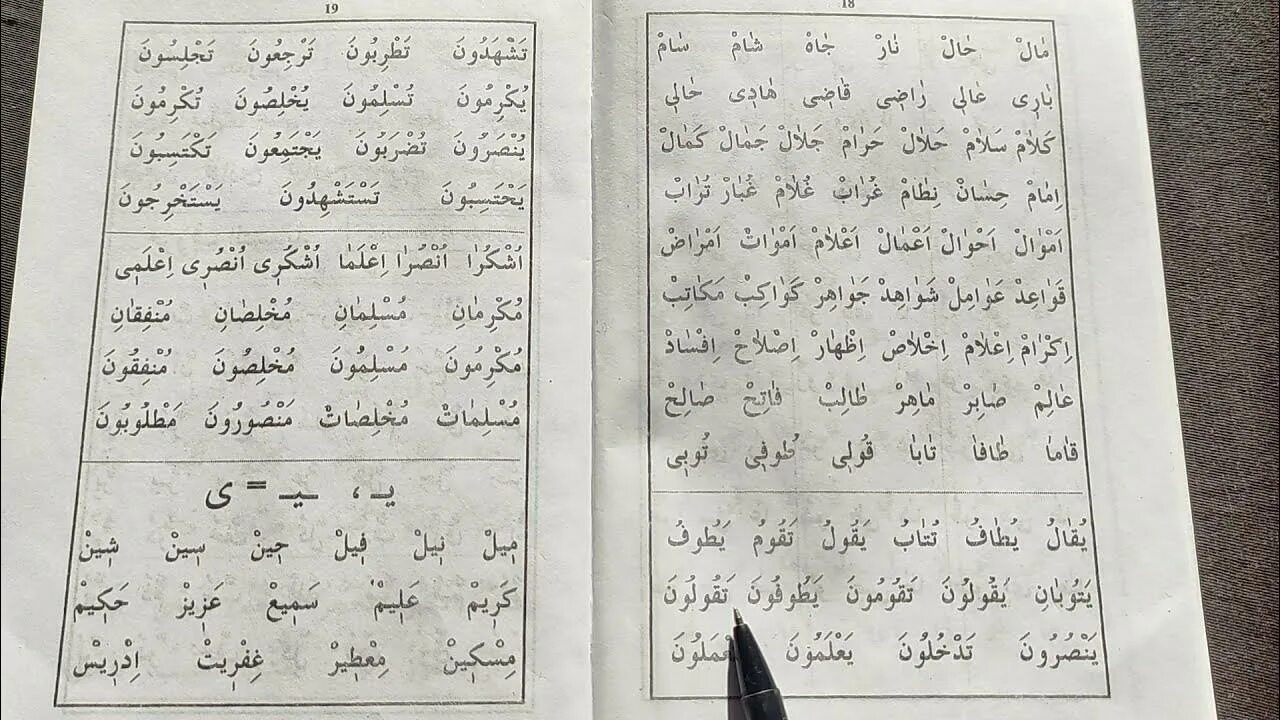 18
مَالْ حَالْ نَارْ جَاهْ شَامْ سَامْ
بَارِي عَالِي رَاضِي قَاضِي هَادِي خَالِي
كَلَامْ سَلَامْ حَلَالْ حَرَامْ جَلَالْ جَمَالْ كَمَالْ
اِمَامْ حِسَانْ نِظَامْ غُرَابْ غُلَامْ غُبَارْ تُرَابْ
اَمْوَالْ اَحْوَالْ اَعْمَالْ اَعْلَامْ اَمْوَاتْ اَمْرَاضْ
قَوَاعِدْ عَوَامِلْ شَوَاهِدْ جَوَاهِرْ كَوَاكِبْ مَكَاتِبْ
اِكْرَامْ اِعْلَامْ اِخْلَاصْ اِظْهَارْ اِصْلَاحْ اِفْسَادْ
عَالِمْ صَابِرْ مَاهِرْ طَالِبْ فَاتِحْ صَالِحْ
قَامَا طَافَا تَابَا قُولِي طُوفِي تُوبِي
يُقَالُ يُطَافُ تُتَابُ يَقُولُ تَقُومُ يَطُوفُ
يَتُوبَانِ يَقُولُونَ تَقُومُونَ يَطُوفُونَ تَقُولُونَ
يَنْصُرُونَ تَدْخُلُونَ يَعْلَمُونَ
19
تَشْهَدُونَ تَطْرِبُونَ تَرْجِعُونَ تَجْلِسُونَ
يُكْرِمُونَ تُسْلِمُونَ يُخْلِصُونَ تُكْرِمُونَ
يُنْصَرُونَ تُضْرَبُونَ يَجْتَمِعُونَ تَكْتَسِبُونَ
يَحْتَسِبُونَ تَسْتَشْهِدُونَ يَسْتَخْرِجُونَ
اُشْكُرَا اُنْصُرَا اِعْلَمَا اُشْكُرِي اُنْصُرِي اِعْلَمِي
مُكْرِمَانِ مُسْلِمَانِ مُخْلِصَانِ مُنْفِقَانِ
مُكْرِمُونَ مُسْلِمُونَ مُخْلِصُونَ مُنْفِقُونَ
مُسْلِمَاتْ مُخْلِصَاتْ مَنْصُورُونَ مَطْلُوبُونَ
يـ ، ـيـ = ى
مِيلْ نِيلْ فِيلْ جِينْ سِينْ شِينْ
كَرِيمْ عَلِيمْ سَمِيعْ عَزِيزْ حَكِيمْ
مِسْكِينْ مِعْطِيرْ عِفْرِيتْ اِدْرِيسْ